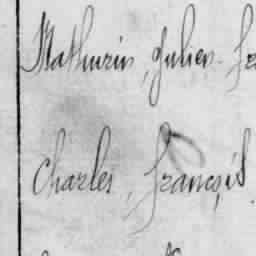 Mathurin, Julien
Charles, François